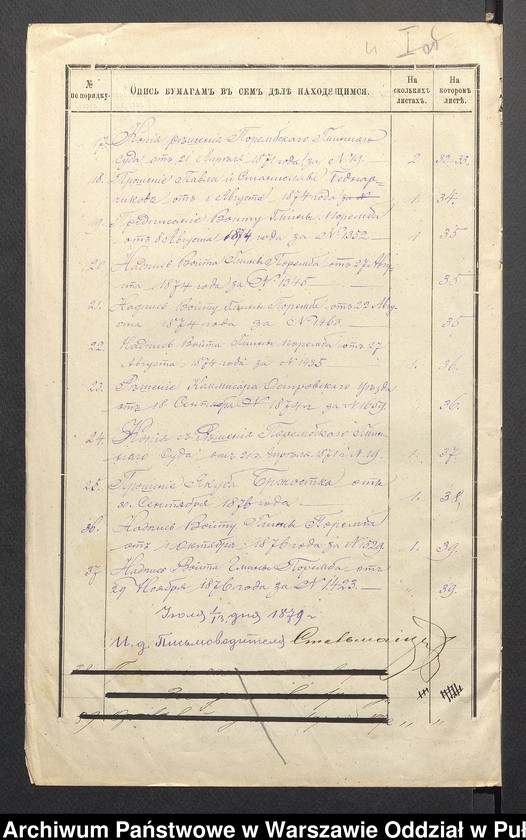 и I об
№ по порядку.
Опись бумагамъ въ семъ дѣлѣ находящимся.
На сколькихъ листахъ.
На которомъ листѣ.
17. Копія рѣшенія Порембскаго Гминнаго
Суда отъ 21 Апрѣля 1871 года за №19. 2 32.33.
18. Прошеніе Павла и Станислава
отъ 1 Августа 1874 года за № 1. 34.
19. Предписаніе Войту Гмины Поремба
отъ 8 Августа 1874 года за №1352 1 35
20. Надпись Войта Гмины Поремба отъ 27 Авгу-
ста 1874 года за №1345 35
21. Надпись Войту Гмины Поремба отъ 22 Авгу-
ста 1874 года за №1463. 35
22. Надпись Войта Гмины Поремба отъ 27
Августа 1874 года за №1435 1. 36.
23. Рѣшеніе Коммисара Островскаго Уѣзда
отъ 18 Сентября 1874 г за №1659. 36.
24. Копія съ Рѣшенія Порембскаго Гмин-
наго Суда отъ 21 Апрѣля 1871 г №19. 1. 37.
25. Прошеніе Якуба отъ
Сентября 1876 года 1. 38.
36. Надпись Войту Гмины Поремба
отъ 1 Октября 1876 года за №1529. 1. 39.
37 Надпись Войта Гмины Поремба отъ
29 Ноября 1876 года за №1423. 39.
Іюля 1/13 дня 1879 г
И. д. Письмоводителя
Archiwum Państwowe w Warszawie Oddział w Puł